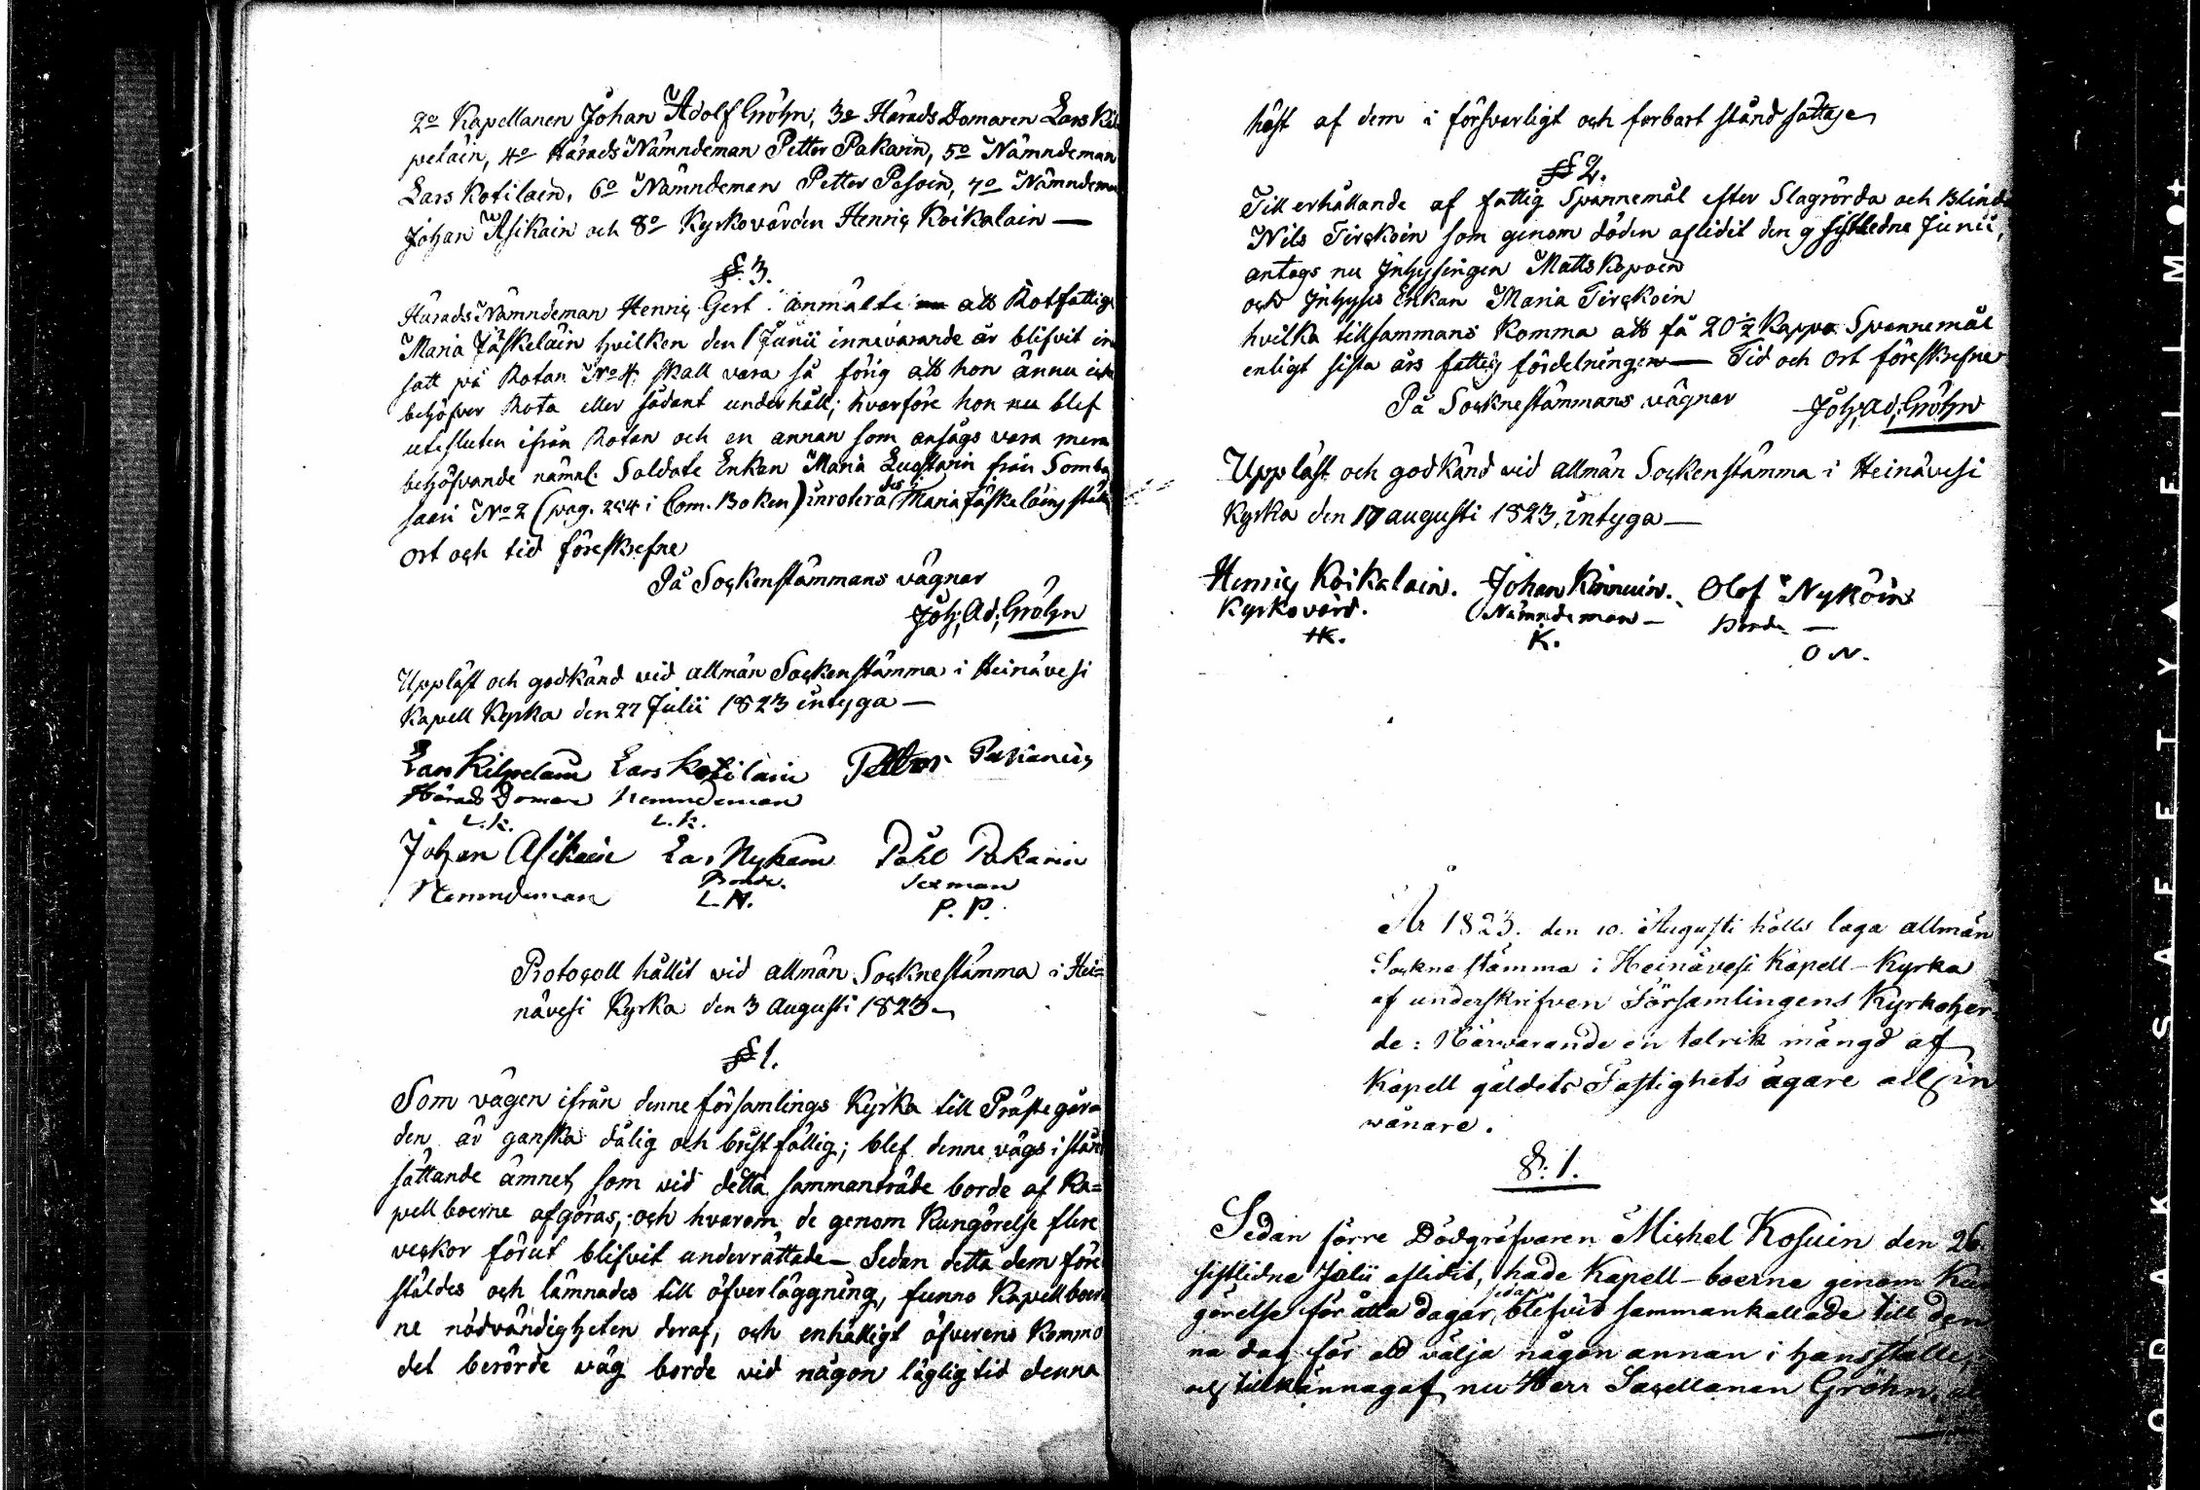 2o Kapellanen Johan Adolf Gröhn, 3o Härads Domaren Lars Kil
peläin, 4o Härads Nämndeman Petter Pakarin, 5o Nämndeman
Lars Kotilain, 6o Nämndeman Petter Pesoin, 7o Nämndeman
Johan Asikain och 8o Kyrkovärden Henric Koikalain —
§. 3.
Härads Nämndeman Henric Gert anmälte att Rotfattige
Maria Jäskeläin hvilken den 1 Junii innevarande år blifvit in
satt på Rotan No 4 skall vara så förig att hon ännu icke
behöfver Rota eller sådant underhåll; hvarföre hon nu blef
utesluten ifrån Rotan och en annan som ansågs vara mera
behöfvande nämnl. Soldats Enkan Maria Lustarin från Somba
saari No 2 (pag. 254 i Com. Boken) inrotera des i (Maria Jäskeläins ställe
ort och tid föreskrefne
På Sockenstämmans vägnar
Joh. Ad. Gröhn
Uppläst och godkänd vid allmän Sockenstämma i Heinävesi
Kapell Kyrka den 27 Julii 1823 intyga —
Lars Kilpeläin Lars Kotilain Petter Pakarin
Härads Domare Nemndeman
L. K. L. K.
Johan Asikain Lars Nykäin Påhl Pakarin
Nemndeman Bonde. Sexman
L. N. P. P.
Protocoll hållit vid allmän Socknestämma i Hei=
nävesi Kyrka den 3 Augusti 1823
§ 1.
Som vägen ifrån denne församlings Kyrka till Prästegår
den är ganska dålig och bristfällig; blef denne vägs i stånd
sättande ämnet som vid detta sammanträde borde af Ka=
pellboerne afgöras, och hvarom de genom Kungörelse flere
veckor förut blifvit underrättade — Sedan detta dem före
stäldes och lämnades till öfverläggning, funno Kapellboer
ne nödvändigheten deraf, och enhälligt öfverens kommo
det berörde väg borde vid någon läglig tid denna
höst af dem i försvarligt och farbart stånd sättas
§ 2.
Till erhållande af fattig Spannemål efter Slagrörda och Blinda
Nils Tirckoin som genom döden aflidit den 9 sistledne Junii,
antogs nu Inhysingen Matts Kopoin
och Inhyses Enkan Maria Tirckoin
hvilka tillsammans komma att få 20 1/2 Kappa Spannemål
enligt sista års fattig fördelningen — Tid och ort föreskrefne
På Socknestämmans vägnar Joh. Ad. Gröhn
Uppläst och godkänd vid allmän Sockenstämma i Heinävesi
Kyrka den 17 augusti 1823, intyga —
Henric Koikalain. Johan Kinnuin. Olof Nyköin
Kyrkovärd. Nämndeman — Bonde —
HK. K. O N.
År 1823. den 10. Augusti hölls laga allmän
Sockne stämma i Heinävesi Kapell-Kyrka
af underskrifven Församlingens Kyrkoher
de: Närvarande en talrik mängd af
Kapell gäldets Fastighets ägare och in
vånare.
§: 1.
Sedan förre Dödgräfvaren Michel Kosuin den 26
sistlidne Julii aflidit, hade Kapell-boerne genom Kun
görelse för åtta dagar sedan blifvit sammankallade till den
na dag för att välja någon annan i hans ställe,
och tillkännagaf nu Herr Sacellanen Gröhn,
KODAK SAFETY FILM